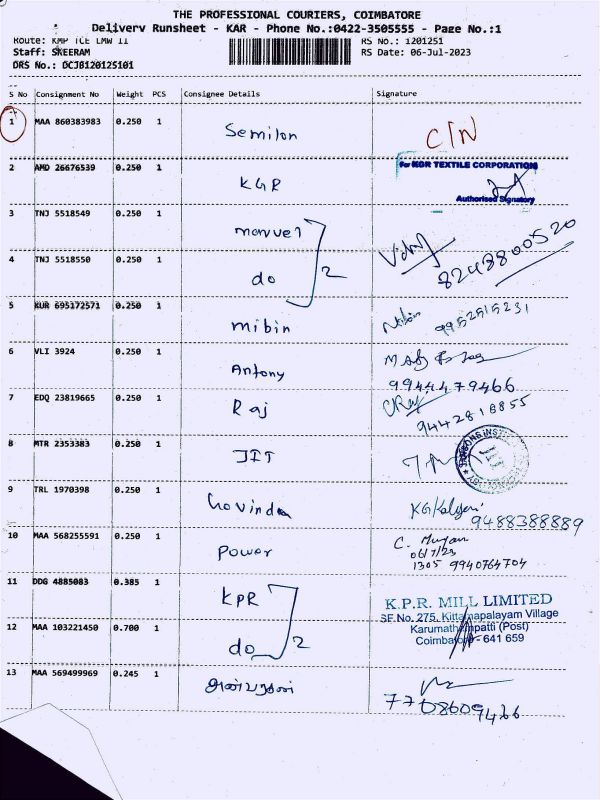 THE PROFESSIONAL COURIERS, COIMBATORE
Delivery Runsheet - KAR - Phone No.:0422-3505555 - Page No.:1
Route: KMP TCE LMW II
RS No.: 1201251
Staff: SKEERAM
RS Date: 06-Jul-2023
DRS No.: DCJ8120125101
S No Consignment No Weight PCS Consignee Details Signature
1 MAA 860383983 0.250 1 Semilon CIN
2 AMD 26676539 0.250 1 KGR
For KGR TEXTILE CORPORATION
Authorised Signatory
3 TNJ 5518549 0.250 1 manuel
4 TNJ 5518550 0.250 1 do 2 8248800520
5 KUR 695172571 0.250 1 mibin 9952515231
6 VLI 3924 0.250 1 Antony
9944479466
7 EDQ 23819665 0.250 1 Raj
9442818855
8 MTR 2353383 0.250 1 JIT
9 TRL 1970398 0.250 1 Govinda
9488388889
10 MAA 568255591 0.250 1 Power C. Murugan
06/7/23
1305 9940764704
11 DDG 4885083 0.385 1 KPR
K.P.R. MILL LIMITED
SF.No. 275, Kittampalayam Village
Karumathampatti (Post)
Coimbatore - 641 659
12 MAA 103221450 0.700 1 do 2
13 MAA 569499969 0.245 1
7708609466